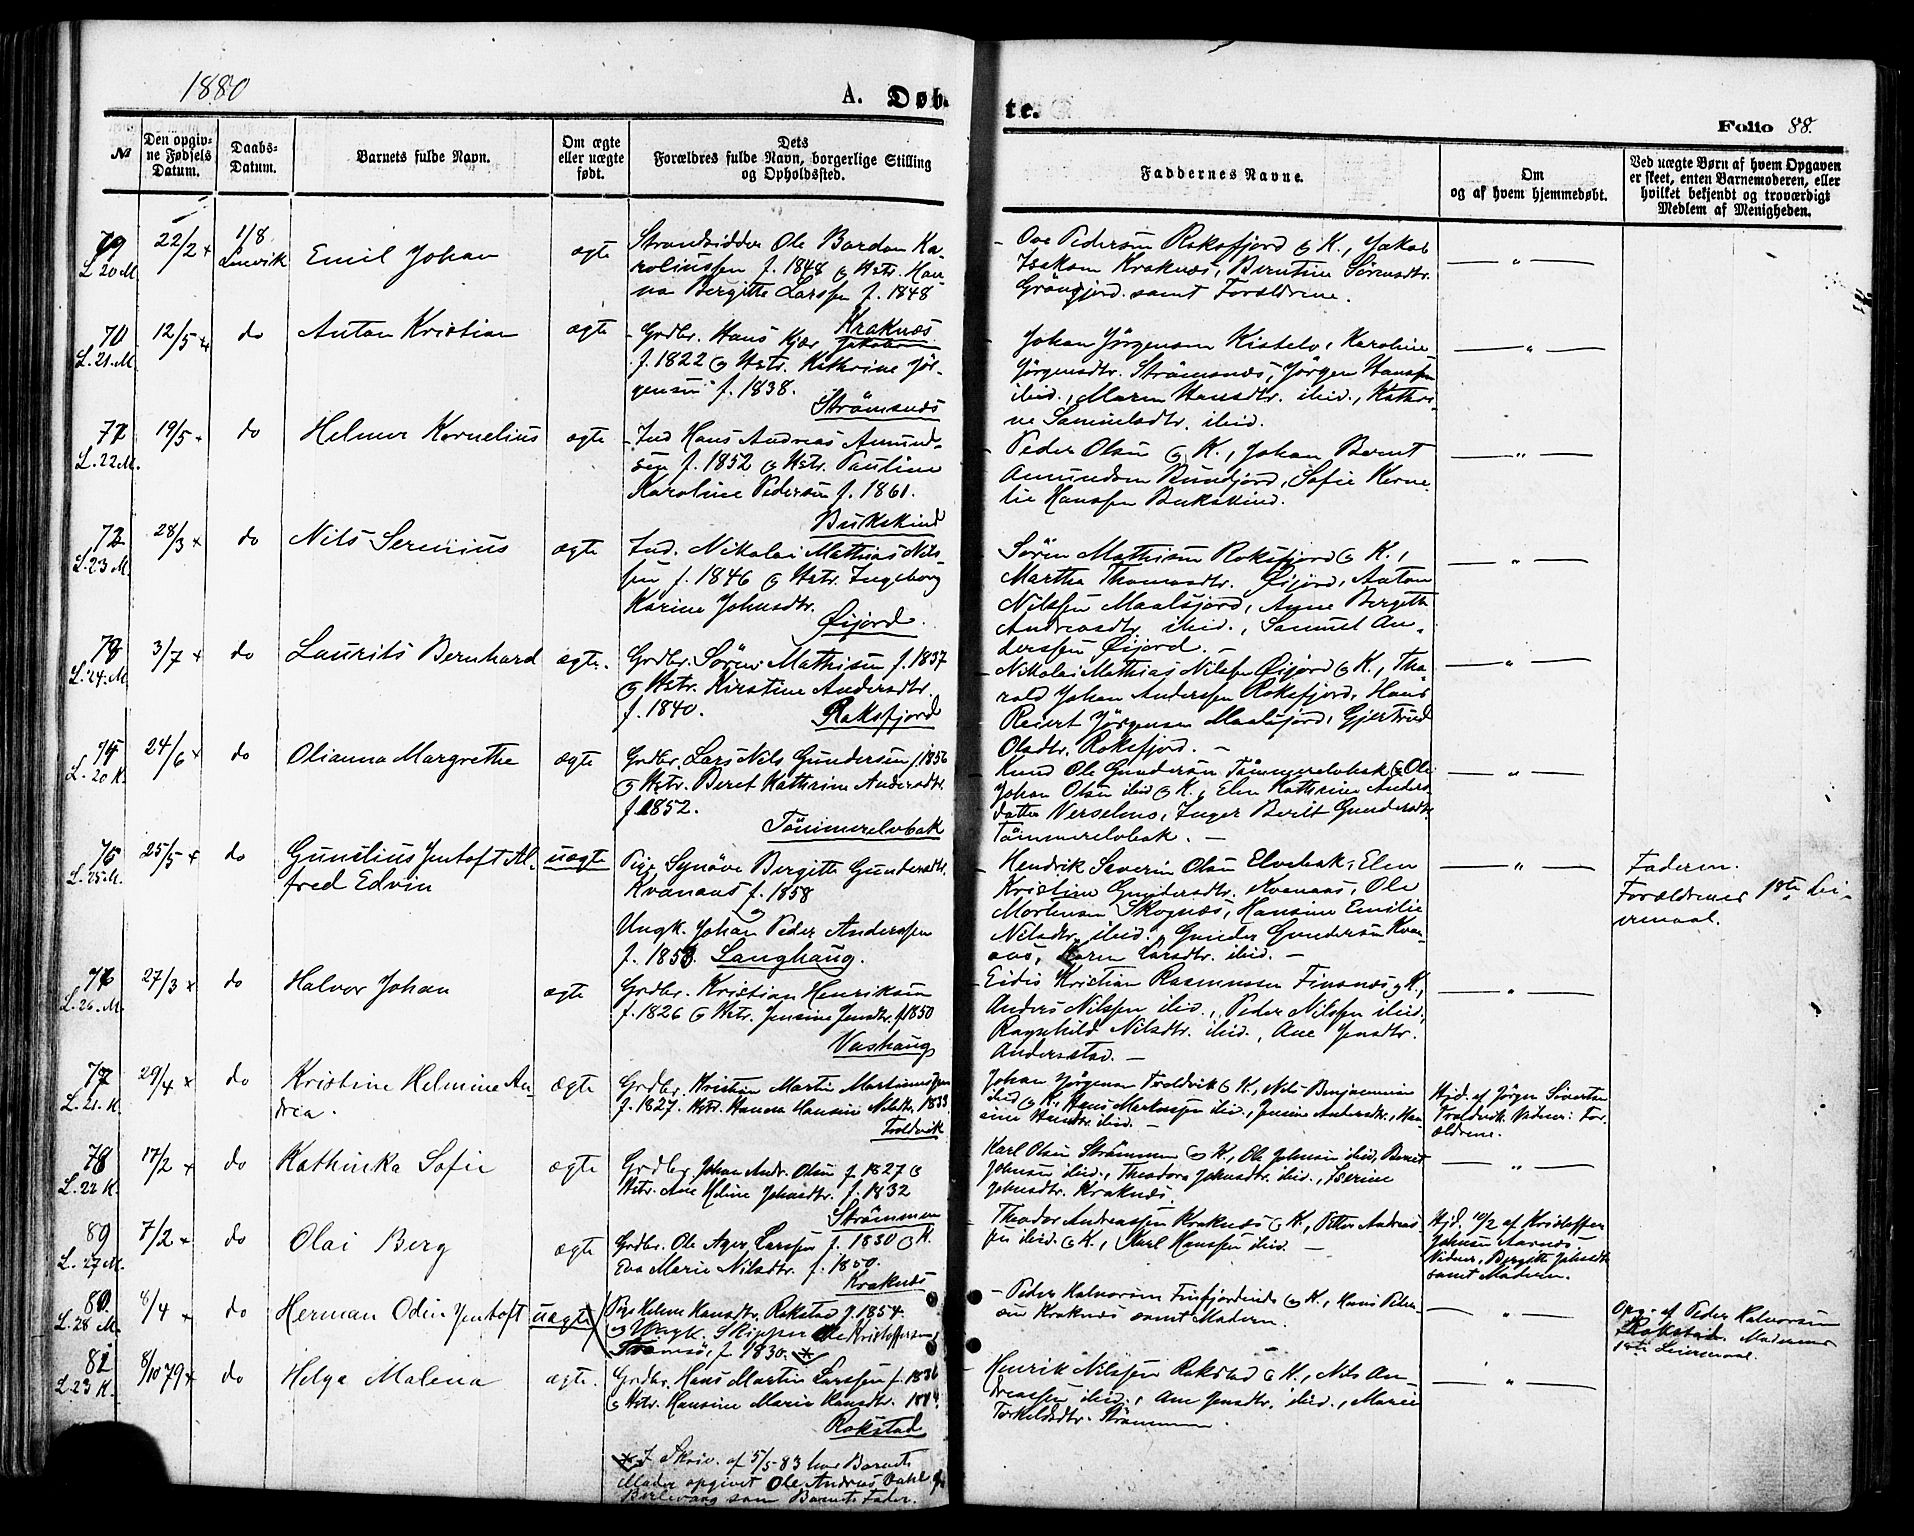 1880
A. Døb-
te.
Folio 88.
№
Den opgiv-
ne Fødsels
Datum.
Daabs-
Datum.
Barnets fulde Navn.
Om ægte
eller uægte
født.
Dets
Forældres fulde Navn, borgerlige Stilling
og Opholdssted.
Faddernes Navne.
Om
og af hvem hjemmedøbt.
Ved uægte Børn af hvem Opgaven
er skeet, enten Barnemoderen, eller
hvilket bekjendt og troværdigt
Medlem af Menigheden.
L. 20 M.
22/2
1/8
Lenvik
Emil Johan
ægte
Strandsidder Ole Bardon Ka-
roliussen f. 1848 og Hstr. Han-
na Bergitte Larssen f. 1848
Kraknæs
Ove Pedersen Roksfjord og K., Jakob
Isaksen Kraknæs, Berntine Sørensdtr.
Grönfjord samt Forældrene.
70
L. 21. M.
12/5
do
Anton Kristian
ægte
Grdbr. Hans Kjær Jakobsen
f. 1822 og Hstr. Kathrine Jör-
gensen f. 1838.
Strömsnæs
Johan Jörgensen Kistelv, Karoline
Jörgensdtr. Strömsnæs, Jörgen Hanssen
ibid., Maren Hansdtr. ibid., Kathri-
ne Samuelsdtr. ibid.
71
L. 22 M.
19/5
do
Helmer Kornelius
ægte
Ind Hans Andreas Amund-
sen f. 1852 og Hstr. Pauline
Karoline Pedersen f. 1861.
Bukskind
Peder Olsen og K., Johan Bernt
Amundsen Bundfjord, Sofie Korne-
lie Hanssen Bukskind.
72
L. 23 M.
28/3
do
Nils Serenius
ægte
Ind. Nikolai Mathias Nils-
sen f. 1846 og Hstr. Ingeborg
Karine Johnsdtr.
Øijord.
Sören Mathisen Roksfjord og K.,
Martha Thomasdtr. Øijord, Anton
Nilssen Maalsjord, Anne Bergitte
Andreasdtr. ibid., Samuel An-
derssen Øijord.
73
L. 24. M.
3/7
do
Laurits Bernhard
ægte.
Grdbr. Sören Mathisen f. 1837
og Hstr. Kirstine Andersdtr.
f. 1840.
Roksfjord
Nikolai Mathias Nilssen Øijord og K., Tho-
rald Johan Anderssen Roksfjord, Hans
Reiert Jörgensen Maalsjord, Gjertrud
Olsdtr. Roksfjord.
74
L. 20 K.
24/6
do
Olianna Margrethe
ægte
Grdbr. Lars Nils Gundersen f. 1856
og Hstr. Beret Kathrine Andersdtr.
f. 1852.
Tömmerelvbak
Knud Ole Gundersen Tömmerelvbak og Ole
Johan Olsen ibid og K., Elen Kathrine Anders-
datter Verselvnes, Inger Berit Gundersdtr.
Tömmerelvbak.
75
L. 25 M.
25/5
do
Gunelius Jentoft Al-
fred Edvin
uægte
Pig. Synöve Bergitte Gundersdtr.
Kvanaas f. 1858
og
Ungk. Johan Peder Anderssen
f. 1858. Langhaug.
Hendrik Severin Olsen Elvebak, Elen
Kristine Gundersdtr. Kvanaas, Ole
Mortensen Skognæs, Hansine Emilie
Nilsdtr. ibid., Gunder Gundersen Kvan-
aas, Karen Larsdtr. ibid.
Faderen.
Forældrenes 1ste Lei-
ermaal.
76
L. 26. M.
27/3
do
Halvor Johan
ægte
Grdbr. Kristian Henriksen
f. 1826 og Hstr. Jensine Jensdtr. f. 1850
Vashaug
Eidis Kristian Rasmussen Finnæs og K.,
Anders Nilssen ibid., Peder Nilssen ibid,
Ragnhild Nilsdtr. ibid., Ane Jensdtr.
Andersstad.
77
L. 21. K.
29/4
do
Kristine Helmine An-
dria.
ægte
Grdbr. Kristen Martin Martinussen
f. 1827. Hstr. Hanna Hansine Nilsdtr. 1839
Troldvik
Johan Jörgensen Troldvik og K., Nils Benjaminsen
ibid og K., Hans Markussen ibid., Jensine Andersdtr., Han-
sine Hansdtr. ibid.
Hjd. af Jörgen Sivertsen
Troldvik. Vidner: For-
ældrene.
78
L. 22 K.
17/2
do
Kathinka Sofie
ægte
Grdbr. Johan Andr. Olsen f. 1827 og
Hstr. Ane Helene Johnsdtr. f. 1832
Strömmen
Karl Olsen Strömmen og K., Ole Johnsen ibid, Bernt
Johnsen ibid., Theodora Johnsdtr. ibid., Iserine
Johnsdtr. Kraknæs.
L. 27 M.
7/2
do
Olai Berg
ægte
Grdbr. Ole Ager Larssen f. 1830 og K
Eva Marie Nilsdtr. f. 1850.
Kraknæs
Theodor Andreassen Kraknæs og K., Petter Andreas-
sen ibid. og K., Karl Hanssen ibid.
Hjd. 10/2 af Kristoffer
Johnsen Aarnæs
Vidner, Bergitte Johnsdtr.
samt Moderen.
80.
L. 28 M.
8/4
do
Herman Odin Jentoft
uægte
Pige Helene Hansdtr. Rokstad f. 1854.
og Ungk. Skipper Ole Kristoffersen,
Tromsø, f. 1830.
Peder Halvorsen Finfjordeide og K., Hans Peder-
sen Kraknæs samt Moderen.
Opg. af Peder Halvorsen
Rokstad. Moderens
1ste Leiermaal.
81
L. 23 K.
8/10 79
do
Helga Malena
ægte.
Grdbr. Hans Martin Larssen f. 1836
og Hstr. Hansine Marie Hansdtr. 1844.
Rokstad
Henrik Nilssen Rokstad og K., Nils An-
dreassen ibid., Ane Jensdtr. ibid., Marie
Torkeldsdtr. Strömmen.
* I Skriv. af 5/5 83 har Barnets
Moder opgivet Ole Andreas Dahl fra
Berlevaag som Barnets Fader.